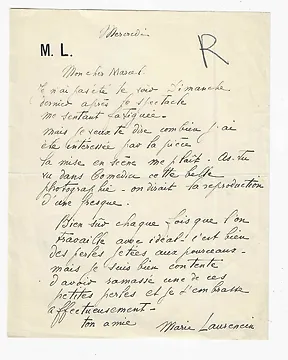 Mercredi
R
M. L.
Mon cher Marcel
Je n'ai pas été te voir Dimanche
dernier après le spectacle
me sentant fatiguée.
mais je veux te dire combien j'ai
été intéressée par ta pièce
ta mise en scène me plait. As-tu
vu dans Comœdia cette belle
photographie - on dirait la reproduction
d'une fresque.
Bien sûr chaque fois que l'on
travaille avec idéal - c'est bien
des perles jetées aux pourceaux -
mais je suis bien contente
d'avoir ramassé une de ces
petites perles et je t'embrasse
affectueusement -
ton amie
Marie Laurencin